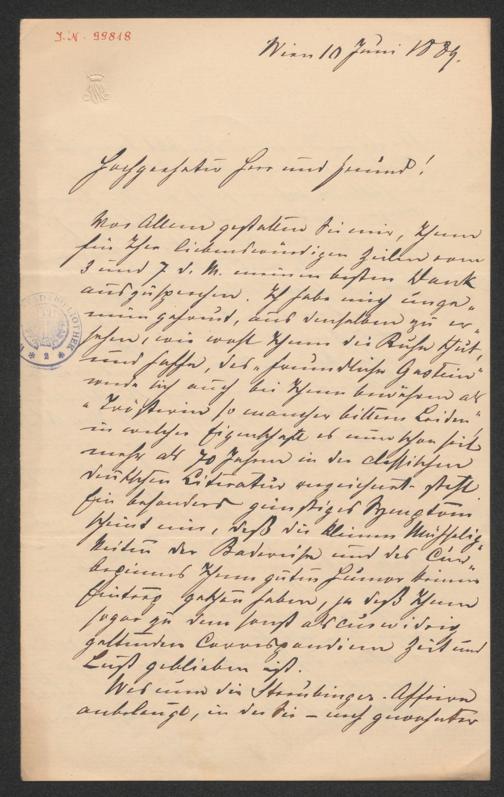 I.N. 99818
Wien 10 Juni 1889.
Hochgeehrter Herr und Freund!
Vor Allem gestatten Sie mir, Ihnen
für Ihre liebenswürdigen Zeilen vom
3 und 7 d. M. meinen besten Dank
auszusprechen. Ich habe mich unge-
mein gefreut, aus denselben zu er-
sehen, wie wohl Ihnen die Ruhe thut,
und hoffe, das "freundliche Gastein"
werde sich auch bei Ihnen bewähren als
"Trösterin so mancher bittern Leiden",
in welcher Eigenschaft es nun schon seit
mehr als 70 Jahren in der classischen
deutschen Literatur verzeichnet steht.
Ein besonders günstiges Symptom
scheint mir, daß die kleinen Mühselig-
keiten der Badereise und des Cur-
beginnes Ihrem guten Humor keinen
Eintrag gethan haben, ja daß Ihnen
sogar zu dem sonst als curwidrig
geltenden Correspondiren Zeit und
Lust geblieben ist.
Was nun die Straubinger-Affaire
anbelangt, in der Sie – nach gewohnter